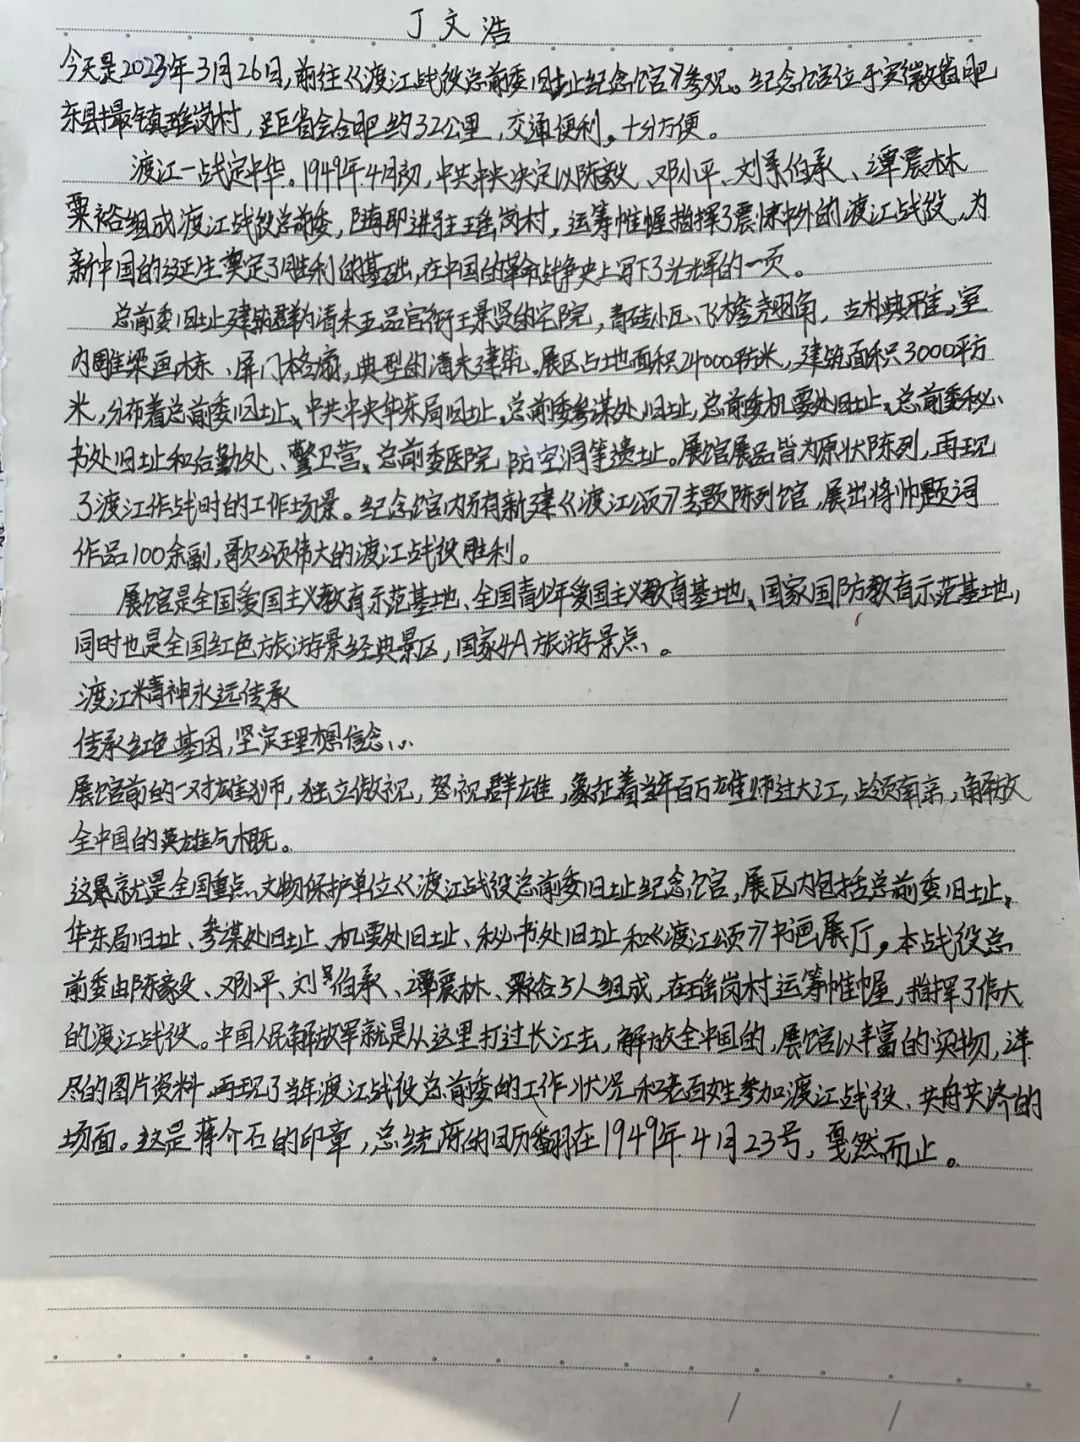 丁文浩
今天是2023年3月26日,前往《渡江战役总前委旧址纪念馆》参观。纪念馆位于安徽省肥
东县撮镇瑶岗村,距省会合肥约32公里,交通便利。十分方便。
渡江一战定中华。1949年4月初,中共中央决定以陈毅、邓小平、刘伯承、谭震林
粟裕组成渡江战役总前委,随即进驻瑶岗村,运筹帷幄指挥了震惊中外的渡江战役,为
新中国的诞生奠定了胜利的基础,在中国的革命战争史上写下了光辉的一页。
总前委旧址建筑群为清末五品官衔王景贤的宅院,青砖小瓦、飞檐翘角,古朴典雅。室
内雕梁画栋、屏门格扇,典型的清末建筑。展区占地面积24000平方米,建筑面积3000平方
米,分布着总前委旧址、中共中央华东局旧址、总前委参谋处旧址,总前委机要处旧址、总前委秘
书处旧址和后勤处、警卫营、总前委医院 防空洞等遗址。展馆展品皆为原状陈列,再现
了渡江作战时的工作场景。纪念馆内另有新建《渡江颂》专题陈列馆,展出将帅题词
作品100余副,歌颂伟大的渡江战役胜利。
展馆是全国爱国主义教育示范基地、全国青少年爱国主义教育基地、国家国防教育示范基地,
同时也是全国红色旅游景经典景区,国家4A旅游景点、。
渡江精神永远传承
传承红色基因,坚定理想信念
展馆前的一对雄狮,独立傲视,怒视群雄,象征着当年百万雄师过大江,占领南京,解放
全中国的英雄气概。
这就是全国重点文物保护单位《渡江战役总前委旧址纪念馆,展区内包括总前委旧址、
华东局旧址、参谋处旧址、机要处旧址、秘书处旧址和《渡江颂》书画展厅,本战役总
前委由陈毅、邓小平、刘伯承、谭震林、粟裕5人组成,在瑶岗村运筹帷幄,指挥了伟大
的渡江战役。中国人民解放军就是从这里打过长江去,解放全中国的,展馆以丰富的实物,详
尽的图片资料,再现了当年渡江战役总前委的工作状况和老百姓参加渡江战役、共舟共济的
场面。这是蒋介石的印章,总统府的日历翻在1949年4月23号,戛然而止。